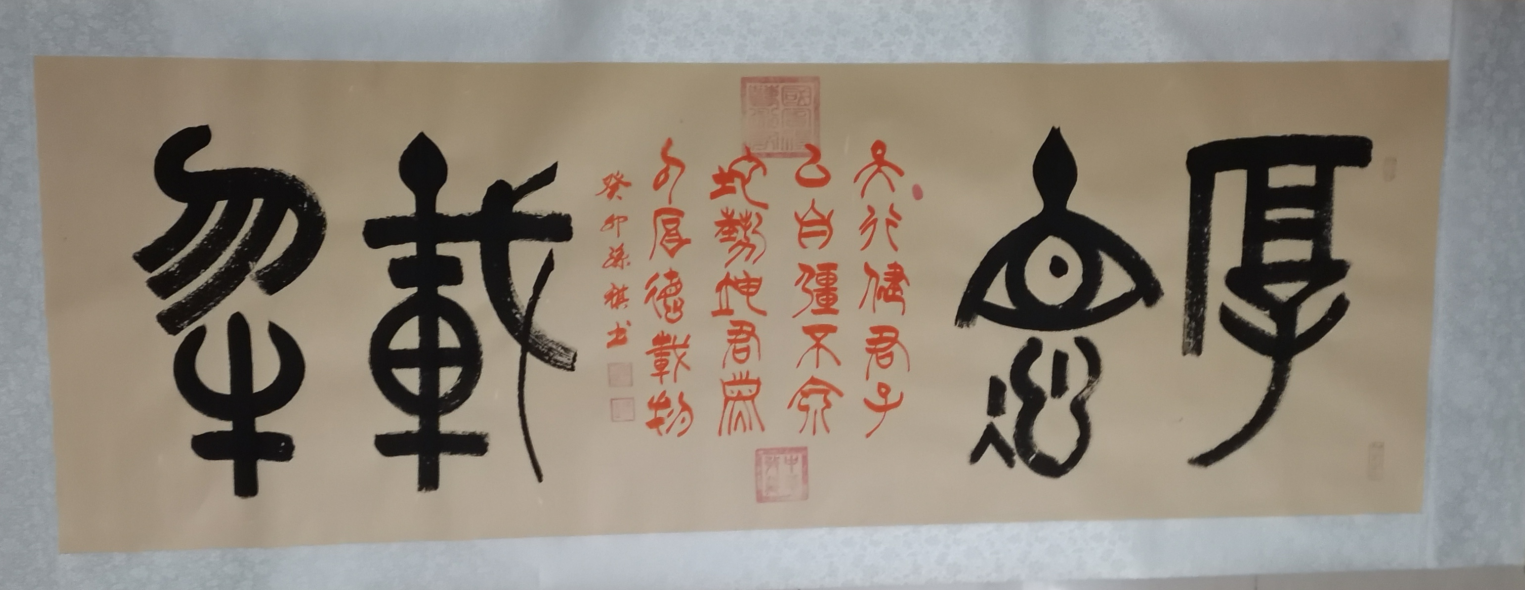 厚悳載物
天行健君子
以自彊不息
地勢坤君子
以厚德載物
癸卯孫祺书